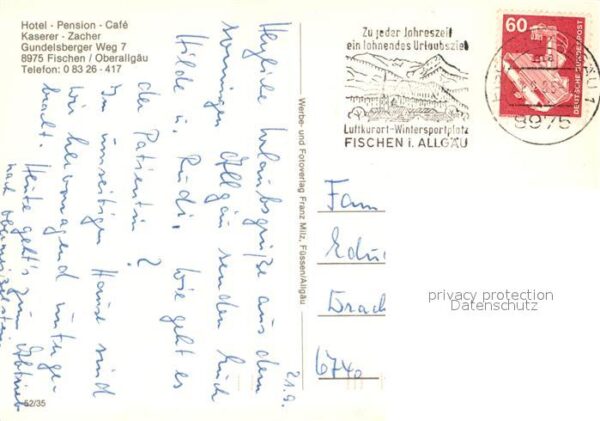 Hotel - Pension - Café
Kaserer - Zacher
Gundelsberger Weg 7
8975 Fischen / Oberallgäu
Telefon: 0 83 26 - 417
21.9.
Herzliche Urlaubsgrüße aus dem
sonnigen Allgäu senden Euch
Hilde u. Rudi. Wie geht es
der Patientin?
Im umseitigen Hause sind
wir hervorragend unterge-
bracht. Heute geht's zum Abtrieb
nach
62/35
Werbe- und Fotoverlag Franz Milz, Füssen/Allgäu
Zu jeder Jahreszeit
ein lohnendes Urlaubsziel
Luftkurort-Wintersportplatz
FISCHEN i. ALLGÄU
60
DEUTSCHE BUNDESPOST
8975
Fam
Edu
Drach
6740
privacy protection
Datenschutz